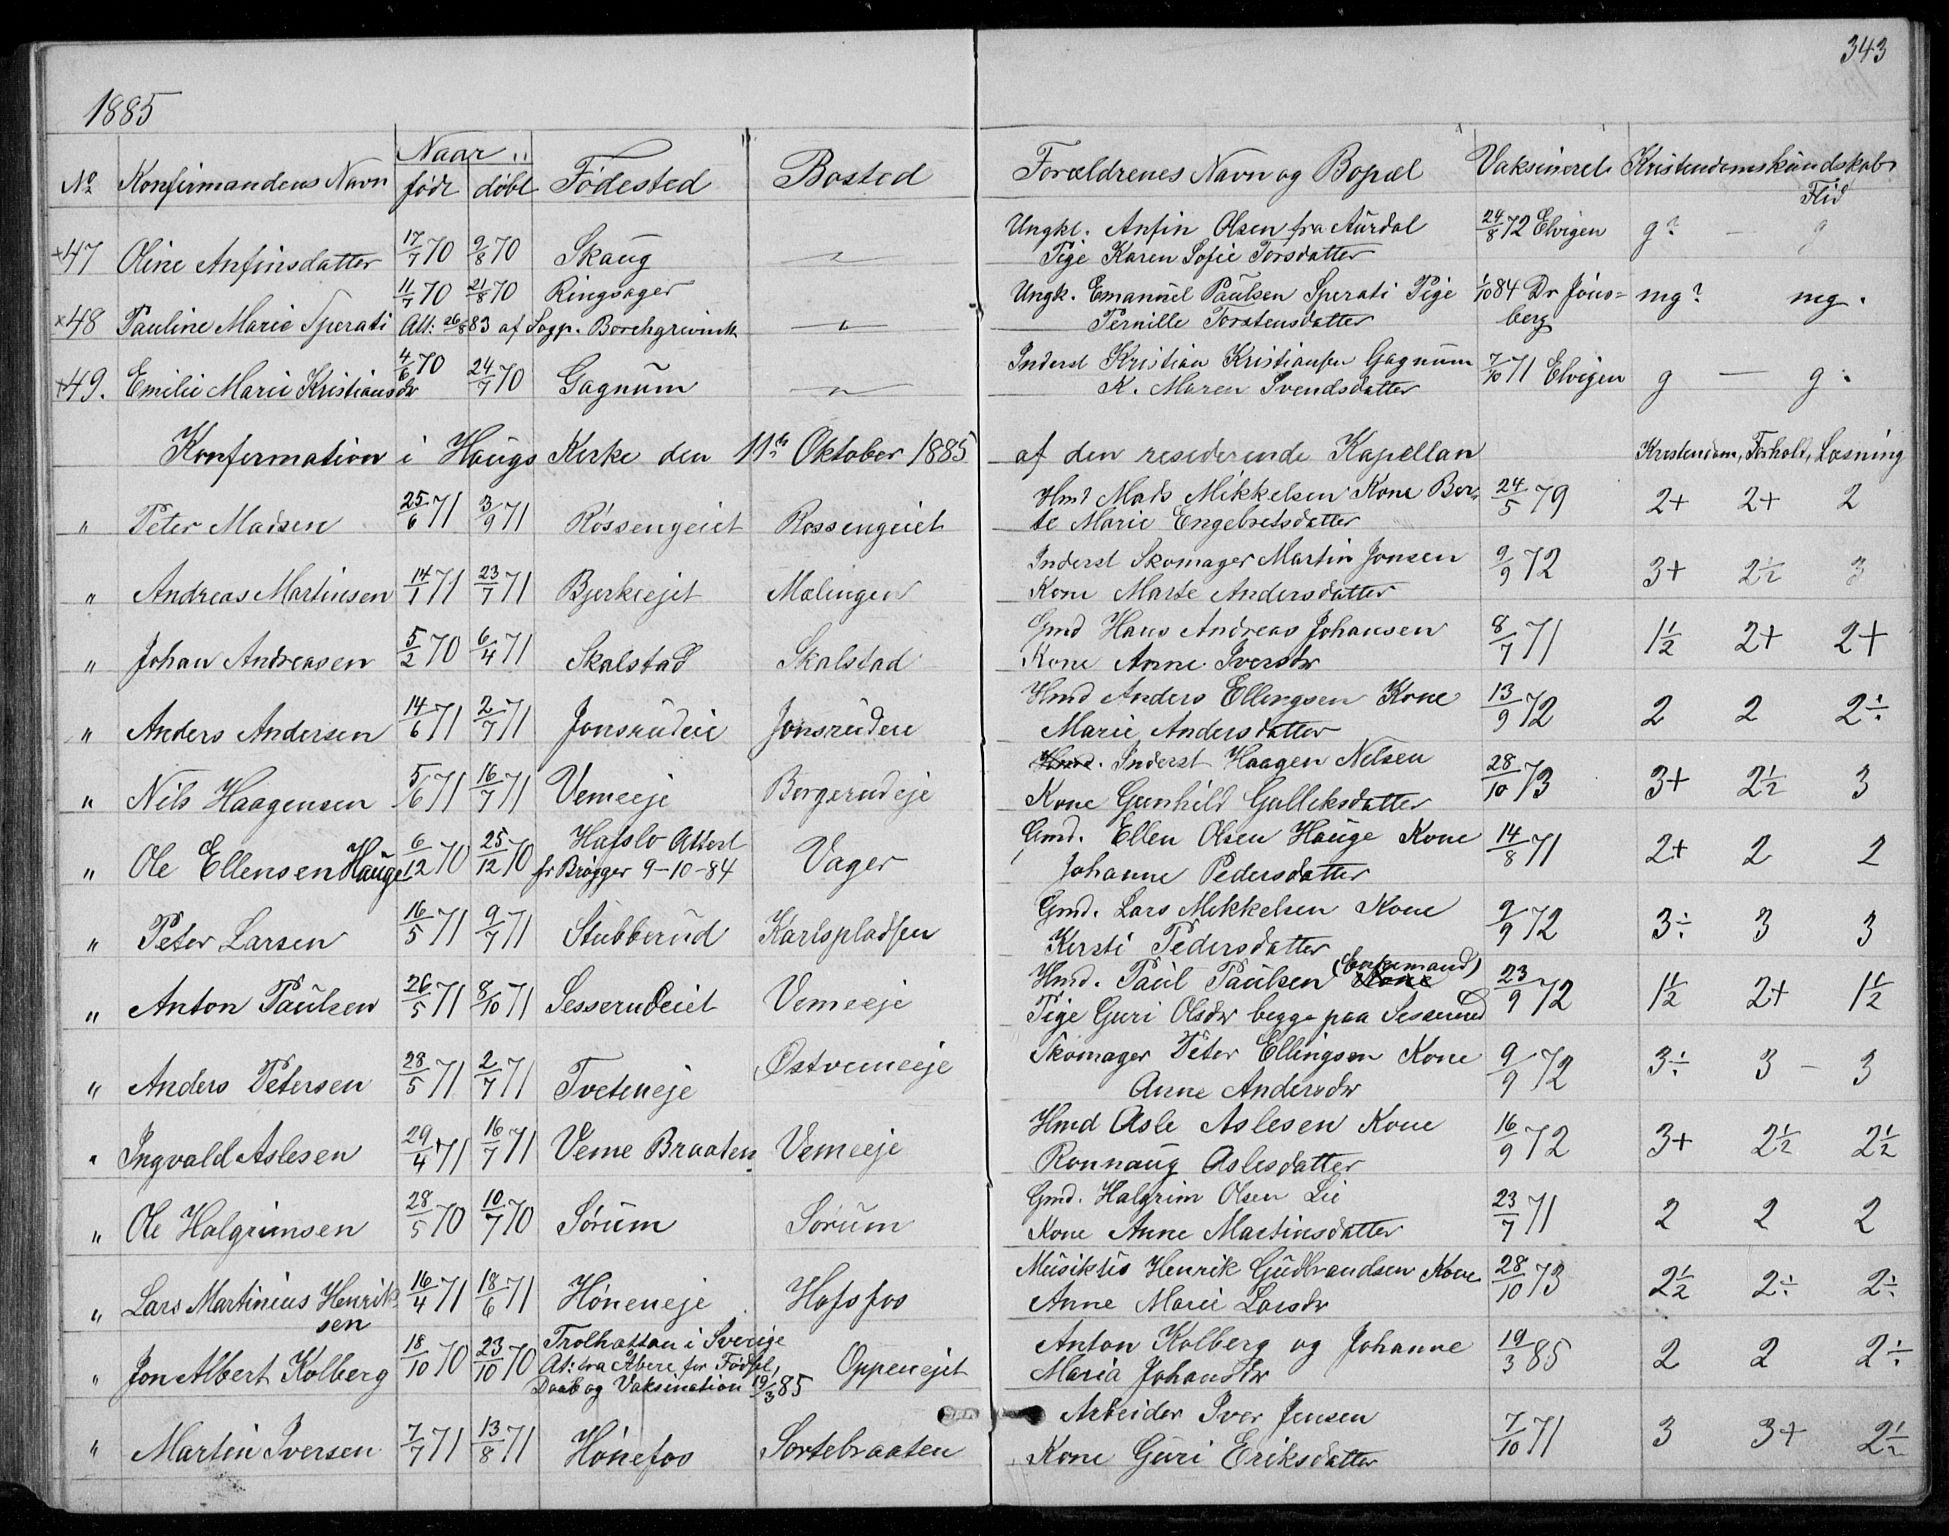 343
1885
Naar
No Konfirmandens Navn født døbt Fødested Bosted Forældrenes Navn og Bopæl Vaksineret Kristendomskundskab Flid
Ungkl. Anfin Olsen fra Aurdal 24/8 72 Elvigen
×47 Oline Anfinsdatter 17/7 70 9/8 70 Skaug — " — Pige Karen Sofie Torsdatter g? — g
11/7 70 21/8 70 Ringsager Ungk. Emanuel Paulsen Sperati Pige 1/10 84 Dr Jons=
×48 Pauline Marie Sperati Att: 26/8 83 af Sogp. Borchgrevink — " — Pernille Torstensdatter berg mg? mg.
4/6 70 Inderst Kristian Kristiansen Gagnum
×49. Emilie Marie Kristiansdr 24/7 70 Gagnum — " — K. Maren Svendsdatter 7/10 71 Elvigen g — g.
Konfirmation i Haugs Kirke den 11te Oktober 1885 af den residerende Kapellan Kristendom, Forhold, Læsning
Hmd Mads Mikkelsen Kone Ber-
" Peter Madsen 25/6 71 3/9 71 Rossengeiet Rossengeiet te Marie Engebretsdatter 24/5 79 2+ 2+ 2
Inderst Skomager Martin Jonsen
" Andreas Martinsen 14/1 71 23/7 71 Bjerkeejet Mælingen Kone Marte Andersdatter 9/9 72 3+ 2½ 3
Gmd Hans Andreas Johansen
" Johan Andreasen 5/2 70 6/4 71 Skalstad Skalstad Kone Anne Iversdr 8/7 71 1½ 2+ 2+
Hmd Anders Ellingsen Kone
" Anders Andersen 14/6 71 2/7 71 Jonsrudeie Jonsrudeie Marie Andersdatter 13/9 72 2 2 2÷
Hmd. Inderst Haagen Nelsen
" Nils Haagensen 5/6 71 16/7 71 Vemeeje Borgerudeje Kone Gunhild Gulleksdatter 28/10 73 3+ 2½ 3
Hafslo Attest Gmd. Ellen Olsen Hauge Kone
" Ole Ellensen Hauge 6/12 70 25/12 70 fr Brøgger 9-10-84 Vager Johanne Pedersdatter 14/8 71 2+ 2 2
Gmd. Lars Mikkelsen Kone
" Peter Larsen 16/5 71 9/7 71 Stubberud Karlspladsen Kersti Pedersdatter 9/9 72 3÷ 3 3
Hmd. Paul Paulsen (Enkemand) Kone
" Anton Paulsen 26/5 71 8/10 71 Sesserudeiet Vemeeje Pige Guri Olsdr begge paa Sesserud 23/9 72 1½ 2+ 1½
Skomager Peter Ellingsen Kone
" Anders Petersen 28/5 71 2/7 71 Tveteneje Østvemeeje Anne Andersdr 9/9 72 3÷ 3 — 3
Hmd Asle Aslesen Kone
" Ingvald Aslesen 29/4 71 16/7 71 Veme Braaten Vemeeje Ronnaug Aslesdatter 16/9 72 3+ 2½ 2½
Gmd. Halgrim Olsen Lie
" Ole Halgrimsen 28/5 70 10/7 70 Sørum Sørum Kone Anne Martinsdatter 23/7 71 2 2 2
Musikus Henrik Gudbrandsen Kone
" Lars Martinius Henrik- 16/4 71 18/6 71 Høneneje Hofsfos Anne Marie Larsdr 28/10 73 2½ 2÷ 2÷
sen
Trolhattan i Sverige Anton Kolberg og Johanne
" Jon Albert Kolberg 18/10 70 23/10 70 At: fra Åbere for Fødsel, Oppenejet Maria Johansdr 19/3 85 2 2 2÷
Daab og Vaksination 19/3 85
Arbeider Iver Jensen
" Martin Iversen 7/7 71 13/8 71 Hønefos Sortebraaten Kone Guri Eriksdatter 7/10 71 3 3+ 2½